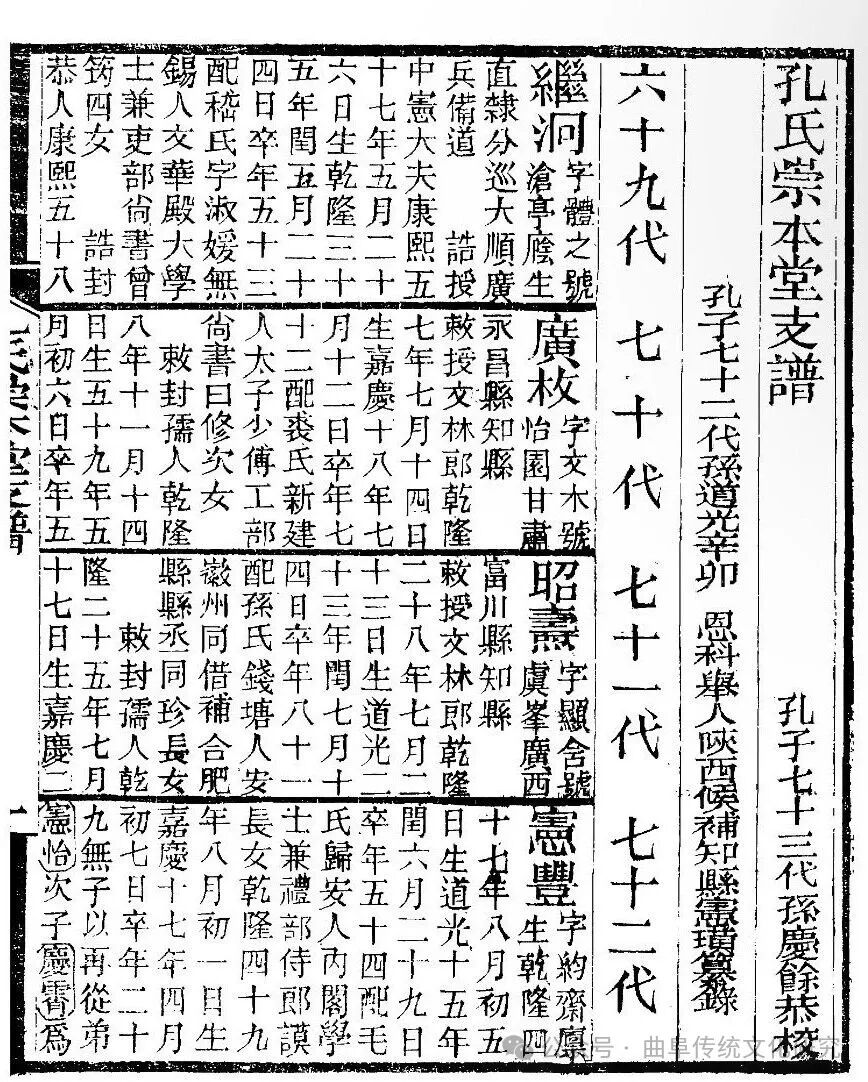 孔氏崇本堂支譜
孔子七十三代孫慶餘恭校
孔子七十二代孫道光辛卯 恩科舉人陝西候補知縣憲璜纂錄
六十九代 七十代 七十一代 七十二代
繼泂 字體之號
滄亭廕生
直隸分巡大順廣
兵備道 誥授
中憲大夫康熙五
十七年五月二十
六日生乾隆三十
五年閏五月二十
四日卒年五十三
配嵇氏字淑媛無
錫人文華殿大學
士兼吏部尚書曾
筠四女 誥封
恭人康熙五十八
廣枚 字文木號
怡園甘肅
永昌縣知縣
敕授文林郎乾隆
七年七月十四日
生嘉慶十八年七
月十二日卒年七
十二配裘氏新建
人太子少傅工部
尚書曰修次女
敕封孺人乾隆
八年十一月十四
日生五十九年五
月初六日卒年五
昭燾 字顯舍號
虞峯廣西
富川縣知縣
敕授文林郎乾隆
二十八年七月二
十三日生道光二
十三年閏七月十
四日卒年八十一
配孫氏錢塘人安
徽州同借補合肥
縣縣丞同珍長女
敕封孺人乾
隆二十五年七月
十七日生嘉慶二
憲豐 字約齋廩
生乾隆四
十七年八月初五
日生道光十五年
閏六月二十九日
卒年五十四配毛
氏歸安人內閣學
士兼禮部侍郎謨
長女乾隆四十九
年八月初一日生
嘉慶十七年四月
初七日卒年二十
九無子以再從弟
憲怡次子慶霄為
崇本堂支譜
一
公众号·曲阜传统文化研究